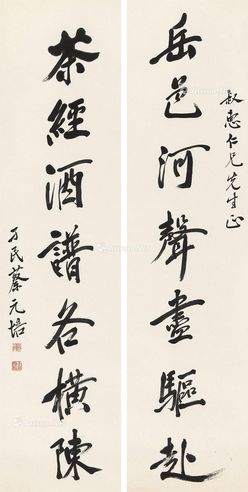 叔惠仁兄先生正
岳色河聲盡驅赴
茶經酒譜名橫陳
孑民蔡元培